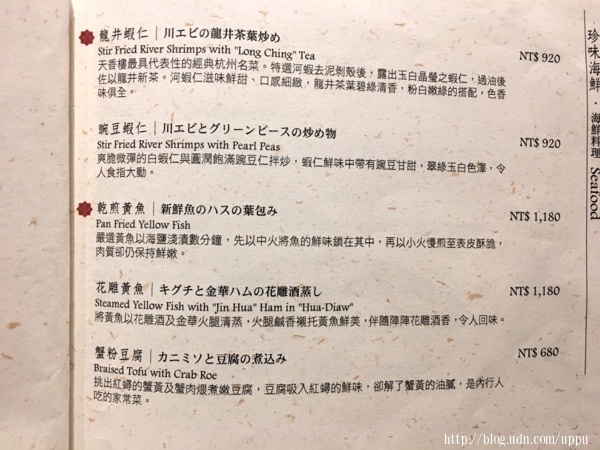 龍井蝦仁│川エビの龍井茶葉炒め
Stir Fried River Shrimps with "Long Ching" Tea
NT$ 920
天香樓最具代表性的經典杭州名菜。特選河蝦去泥剝殼後，露出玉白晶瑩之蝦仁，過油後
佐以龍井新茶。河蝦仁滋味鮮甜、口感細緻，龍井茶葉碧綠清香，粉白嫩綠的搭配，色香
味俱全。
豌豆蝦仁│川エビとグリーンピースの炒め物
Stir Fried River Shrimps with Pearl Peas
NT$ 920
爽脆微彈的白蝦仁與圓潤飽滿豌豆仁拌炒，蝦仁鮮甜中帶有豌豆甘甜，翠綠玉白色澤，令
人食指大動。
乾煎黃魚│新鮮魚のハスの葉包み
Pan Fried Yellow Fish
NT$ 1,180
嚴選黃魚以海鹽淺漬數分鐘，先以中火將魚的鮮味鎖在其中，再以小火慢煎至表皮酥脆，
肉質卻仍保持鮮嫩。
花雕黃魚│キグチと金華ハムの花雕酒蒸し
Steamed Yellow Fish with "Jin Hua" Ham in "Hua-Diaw"
NT$ 1,180
將黃魚以花雕酒及金華火腿清蒸，火腿鹹香襯托黃魚鮮美，伴隨陣陣花雕酒香，令人回味。
蟹粉豆腐│カニミソと豆腐の煮込み
Braised Tofu with Crab Roe
NT$ 680
挑出紅蟳的蟹黃及蟹肉煨煮嫩豆腐，豆腐吸入紅蟳的鮮味，卻解了蟹黃的油膩，是內行人
吃的家常菜。
珍味海鮮．海鮮料理 Seafood
http://blog.udn.com/uppu